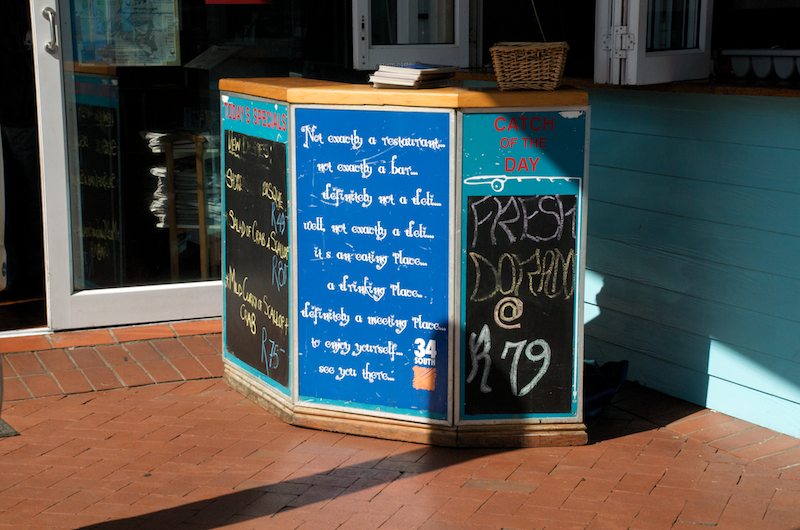 TODAY'S SPECIALS
SALAD OF CRAB & SCALLOP
MILD CURRY OF SCALLOP &
CRAB
R75
Not exactly a restaurant...
not exactly a bar...
definitely not a deli...
well, not exactly a deli...
it's an eating place...
a drinking place...
definitely a meeting place...
to enjoy yourself...
see you there...
34
SOUTH
CATCH
OF THE
DAY
FRESH
DORADO
@
R79